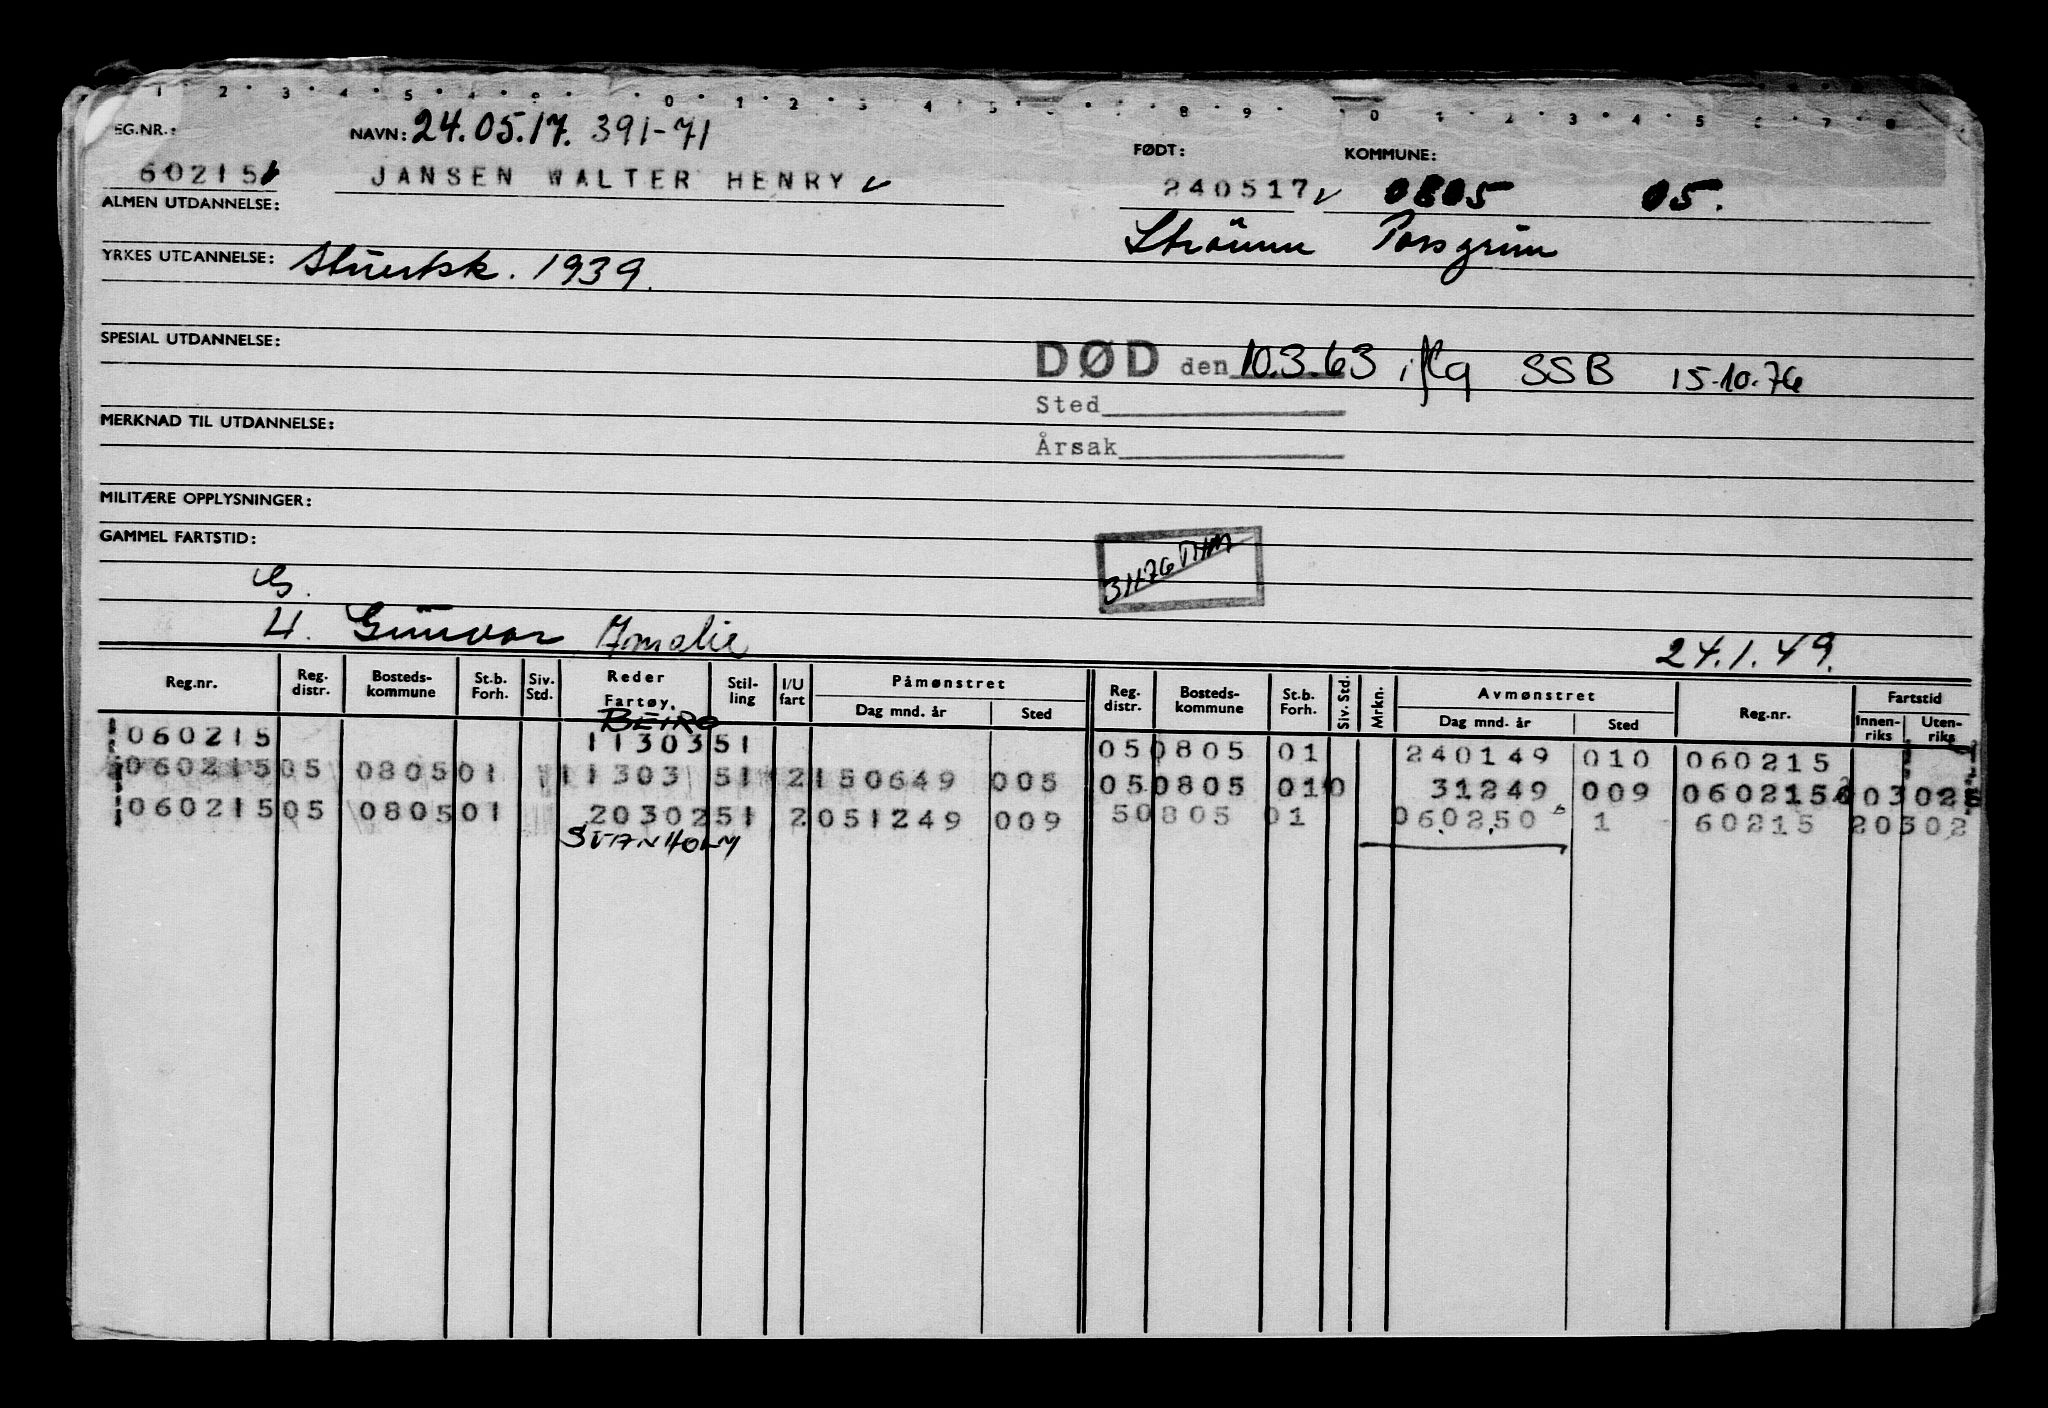 1 2 3 4 5 6 0 1 2 3 4 5 8 9 0 1 2 3 4 5 6 7 8
EG.NR.: NAVN: 24.05.17. 391-71 FØDT: KOMMUNE:
60215 JANSEN WALTER HENRY 240517 0805 05.
ALMEN UTDANNELSE: Porsgrunn
YRKES UTDANNELSE: Stuertsk. 1939.
SPESIAL UTDANNELSE: DØD den 10.3.63 iflg SSB 15.10.76
Sted
MERKNAD TIL UTDANNELSE:
Årsak
MILITÆRE OPPLYSNINGER:
GAMMEL FARTSTID:
G.
H. Gunvor Amalie 24.1.49.
Reg.nr. Reg. distr. Bosteds- kommune St.b. Forh. Siv. Std. Reder Fartøy. Stil- ling I/U fart Påmønstret Dag mnd. år Sted Reg. distr. Bosteds- kommune St.b. Forh. Siv. Std. Mrkn. Avmønstret Dag mnd. år Sted Reg.nr. Fartstid Innen- riks Uten- riks
BEIRO
060215 11303 51 05 0805 01 240149 010 060215
060215 05 0805 01 11303 51 2 150649 005 05 0805 010 31249 009 060215
060215 05 0805 01 20302 51 2 051249 009 5 0805 01 060250 1 60215 20302